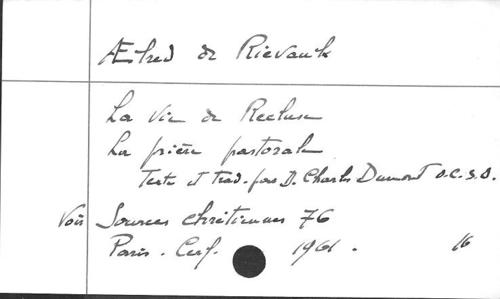 Ælred de Rievaulx
La vie de Recluse
La prière pastorale
Texte et trad. par D. Charles Dumont O.C.S.O.
Voir Sources chrétiennes 76
Paris. Cerf. 1961. 16